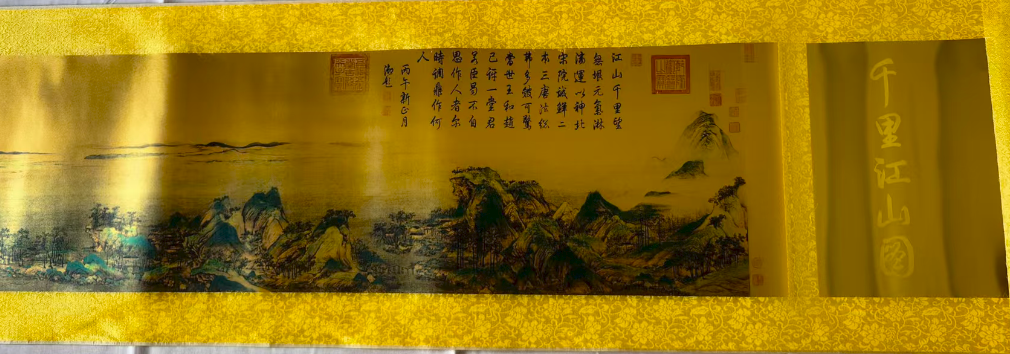 千里江山圖
江山千里望
無垠元氣淋
漓運以神北
宋院誠鮮二
本三唐法總
弗多皴可驚
當世王和趙
已訝一堂君
與臣曷不自
思作人者爾
時調鼎作何
人
丙午新正月
御題